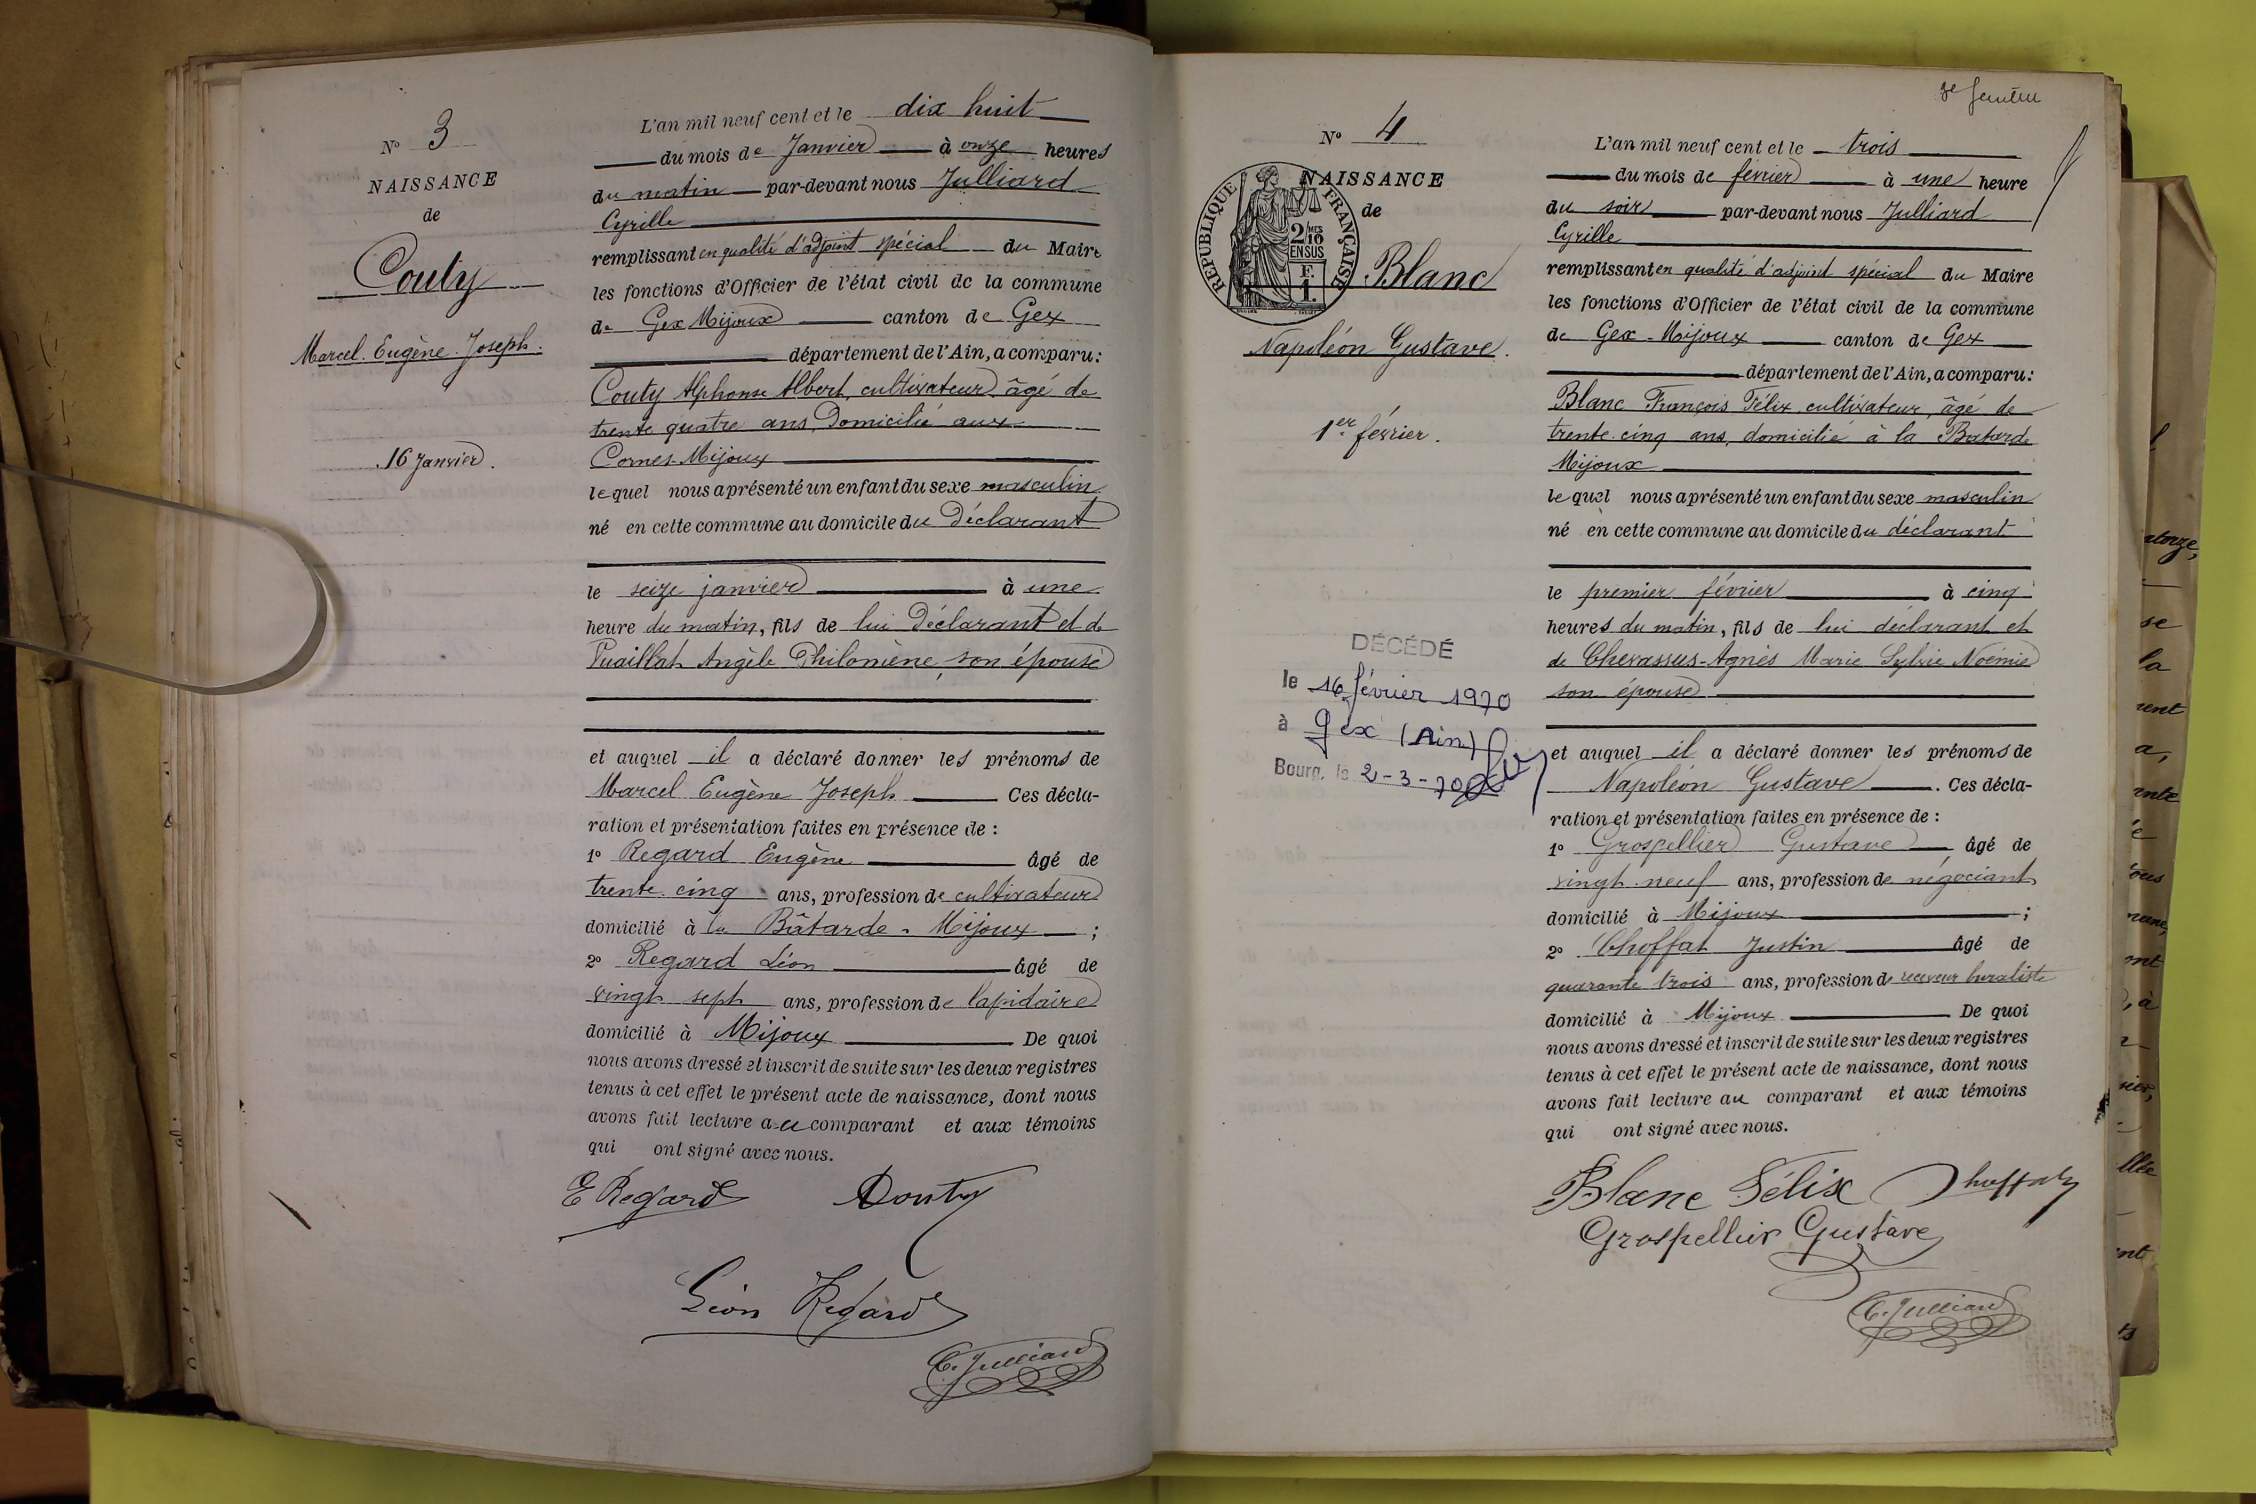 N° 3
NAISSANCE
de
Couty
Marcel. Eugène. Joseph.
16 Janvier.
L'an mil neuf cent et le dix huit
du mois de Janvier à onze heures
du matin par-devant nous Julliard
Cyrille
remplissant en qualité d'adjoint spécial du Maire
les fonctions d'Officier de l'état civil de la commune
de Gex Mijoux canton de Gex
département de l'Ain, a comparu:
Couty Alphonse Albert, cultivateur âgé de
trente quatre ans, Domicilié aux
Cornes-Mijoux
lequel nous a présenté un enfant du sexe masculin
né en cette commune au domicile du Déclarant
le seize janvier à une
heure du matin, fils de lui Déclarant et de
Puaillat Angèle Philomène, son épouse
et auquel il a déclaré donner les prénoms de
Marcel Eugène Joseph Ces décla-
ration et présentation faites en présence de :
1° Regard Eugène âgé de
trente cinq ans, profession de cultivateur
domicilié à la Bâtarde - Mijoux ;
2° Regard Léon âgé de
vingt sept ans, profession de lapidaire
domicilié à Mijoux De quoi
nous avons dressé et inscrit de suite sur les deux registres
tenus à cet effet le présent acte de naissance, dont nous
avons fait lecture au comparant et aux témoins
qui ont signé avec nous.
E Regard Couty
Léon Regard
C. Julliard
N° 4
NAISSANCE
de
RÉPUBLIQUE FRANÇAISE
2/10MES
EN SUS
F.
1.
Blanc
Napoléon Gustave.
1er février.
DÉCÉDÉ
le 16 février 1970
à Gex (Ain)
Bourg, le 2-3-70
L'an mil neuf cent et le trois
du mois de février à une heure
du soir par-devant nous Julliard
Cyrille
remplissant en qualité d'adjoint spécial du Maire
les fonctions d'Officier de l'état civil de la commune
de Gex-Mijoux canton de Gex
département de l'Ain, a comparu:
Blanc François Félix, cultivateur, âgé de
trente-cinq ans, domicilié à la Batarde
Mijoux
lequel nous a présenté un enfant du sexe masculin
né en cette commune au domicile du déclarant
le premier février à cinq
heures du matin, fils de lui déclarant et
de Chevassus-Agnès Marie Sylvie Noémie
son épouse
et auquel il a déclaré donner les prénoms de
Napoléon Gustave. Ces décla-
ration et présentation faites en présence de :
1° Grospellier Gustave âgé de
vingt-neuf ans, profession de négociant
domicilié à Mijoux ;
2° Choffat Justin âgé de
quarante trois ans, profession de receveur buraliste
domicilié à Mijoux De quoi
nous avons dressé et inscrit de suite sur les deux registres
tenus à cet effet le présent acte de naissance, dont nous
avons fait lecture au comparant et aux témoins
qui ont signé avec nous.
Blanc Félix Choffat
Grospellier Gustave
C. Julliard